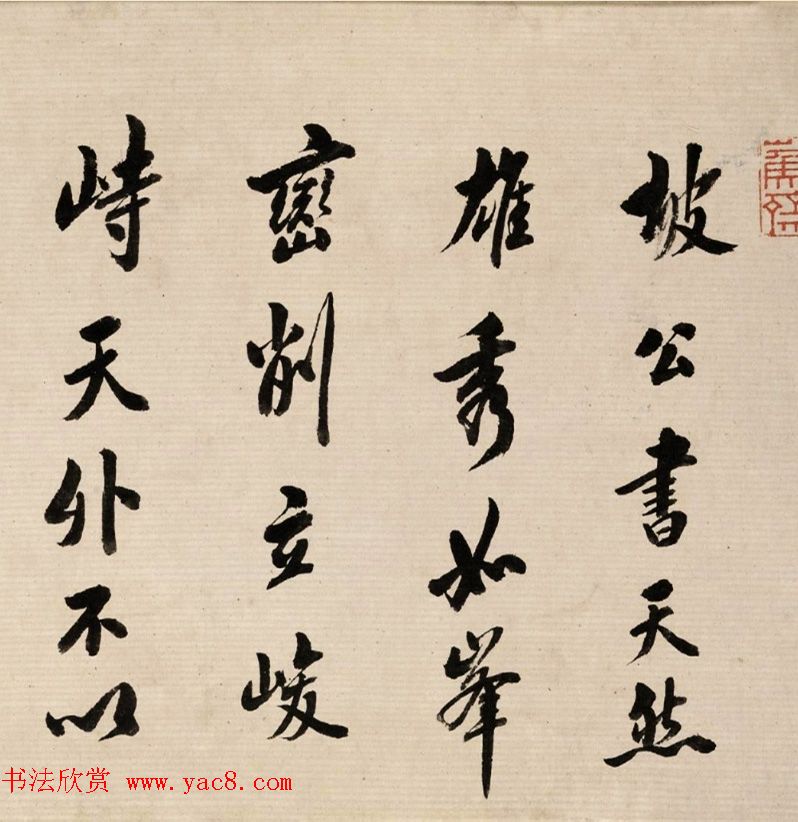 坡公書天然
雄秀如峯
巒削立峻
峙天外不以
书法欣赏 www.yac8.com